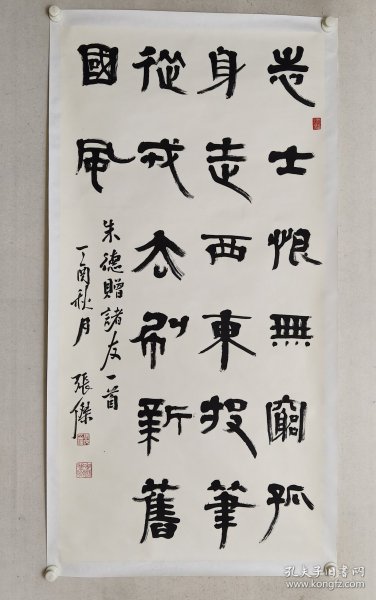 志士恨無窮孤
身走西東投筆
從戎去刷新舊
國風
朱德贈諸友一首
丁酉秋月 張傑
孔夫子旧书网
www.kongfz.com